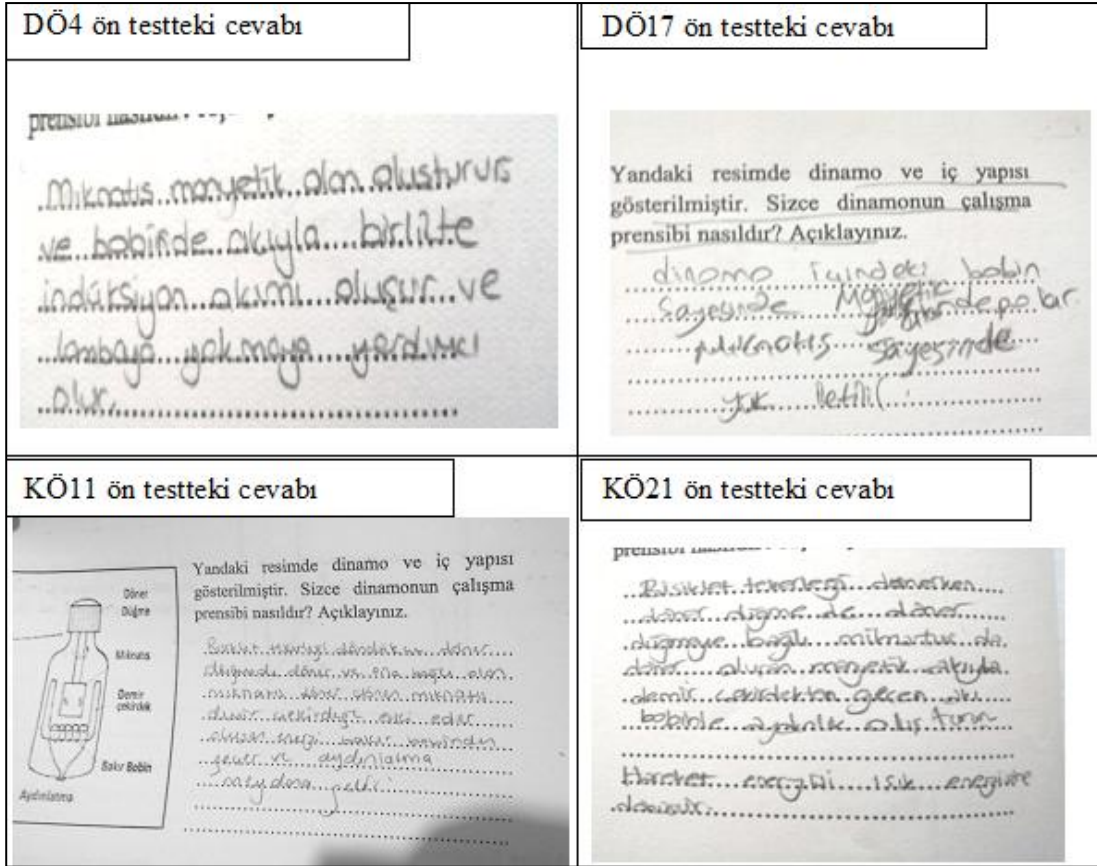 DÖ4 ön testteki cevabı
Mıknatıs manyetik alan oluşturur
ve bobinde akıyla birlikte
indüksiyon akımı oluşur ve
lambaya yakmaya yardımcı
olur.
DÖ17 ön testteki cevabı
Yandaki resimde dinamo ve iç yapısı
gösterilmiştir. Sizce dinamonun çalışma
prensibi nasıldır? Açıklayınız.
dinamo içindeki bobin
sayesinde Manyetik depolar
mıknatıs sayesinde
yük iletilir.
KÖ11 ön testteki cevabı
Döner
Düğme
Mıknatıs
Demir
çekirdek
Bakır Bobin
Aydınlatma
Yandaki resimde dinamo ve iç yapısı
gösterilmiştir. Sizce dinamonun çalışma
prensibi nasıldır? Açıklayınız.
döner
döner ve ona bağlı olan
mıknatıs döner mıknatıs
demir çekirdeği etki eder
oluşan enerji bakır
geçer ve aydınlatma
meydana gelir
KÖ21 ön testteki cevabı
Bisiklet tekerleği dönerken
döner düğme de döner
düğmeye bağlı da
döner manyetik akıyla
demir çekirdekten geçen akı
bobinle
Hareket enerjisi ışık enerjisine
dönüşür.